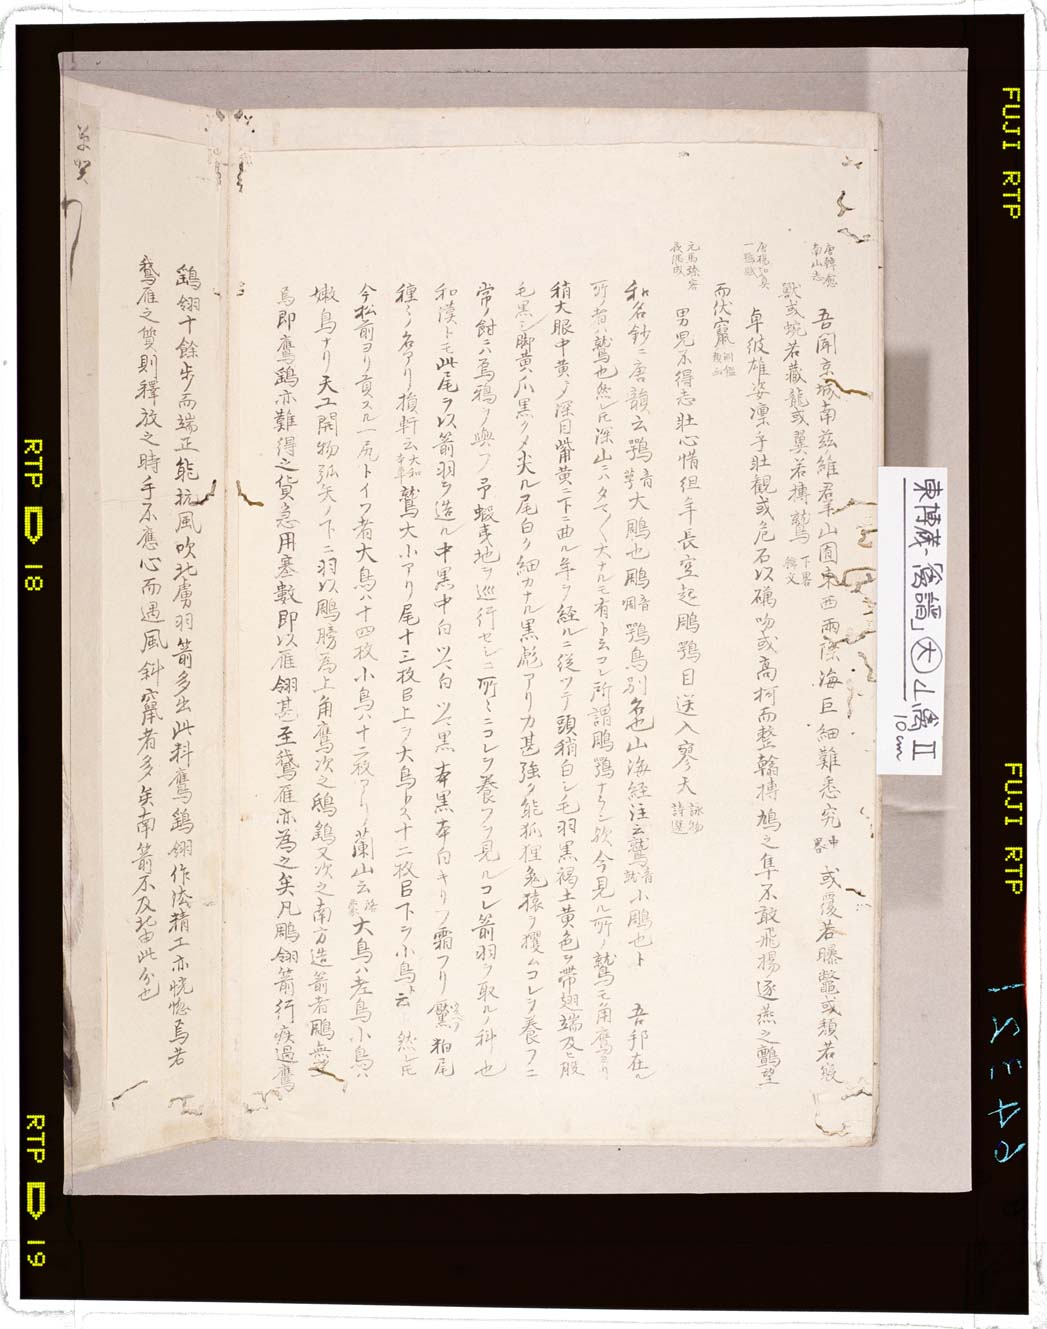 唐韓愈
南山志
吾聞京城南茲維群山囿東西兩際海巨細難悉究 中略 或覆若曝鼈或頽若寝
獣或蜿若蔵龍或翼若搏鷲 下略 韓文
唐楊 一鶚賦
卓彼雄姿凛乎壮觀或危石以礪吻或高柯而整翰搏鳩之隼不敢飛揚逐燕之鸇望
而伏竄 淵鑑類函
元馬臻字
男児不得志壮心惜徂年長空起鵰鶚目送入寥天 詠物詩選
和名鈔ニ唐韻云鶚 音萼 大鵰也鵰 音凋 鶚鳥別名也山海経注云鷲 音就 小鵰也ト 吾邦在ル
所ノ者ハ鷲也然レ𪜈深山ニハ大ナルモ有ト云コレ所謂鵰鶚ナラン歟今見ル所ノ鷲モ角鷹ヨリ
稍大眼中黄ニ深目觜黄ニ下ニ曲ル年ヲ経ルニ従ツテ頭稍白シ毛羽黒褐土黄色ヲ帯翅端及ヒ股
毛黒シ脚黄爪黒クメ尖ル尾白ク細カナル黒彪アリ力甚強ク能狐狸兔猿ヲ攫ムコレヲ養フニ
常ノ餌ニハ烏鴉ヲ與フ予蝦夷地ヲ巡行セシニ所〻ニコレヲ養フヲ見ルコレ箭羽ヲ取ルノ科也
和漢トモ此尾ヲ以箭羽ヲ造ル中黒中白ツマ白ツマ黒本黒本白キリフ霜フリ 粕尾
種〻ノ名アリ損軒云 大和本草 鷲大小アリ尾十三枚目上ヲ大鳥トス十二枚目下ヲ小鳥ト云 然レ𪜈
今松前ヨリ貢スル一尻トイフ者大鳥ハ十四枚小鳥ハ十二枚アリ蘭山云 啓蒙 大鳥ハ老鳥小鳥ハ
嫩鳥ナリ天工開物弧矢ノ下ニ羽以鵰膀為上角鷹次之鴟鷂又次之南方造箭者鵰無望
焉即鷹鷂亦難得之貨急用塞數即以雁翎甚至鵝雁亦為之矣凡鵰翎箭行疾過鷹
鷂翎十餘歩而端正能抗風吹北虜羽箭多出此料鷹鷂翎作法精工亦恍惚焉若
鵝雁之質則釋放之時手不應心而遇風斜竄者多矣南箭不及北由此分也
東博蔵「鳥譜」大 山禽 II
10cm
FUJI RTP
FUJI RTP
RTP 18
RTP 19